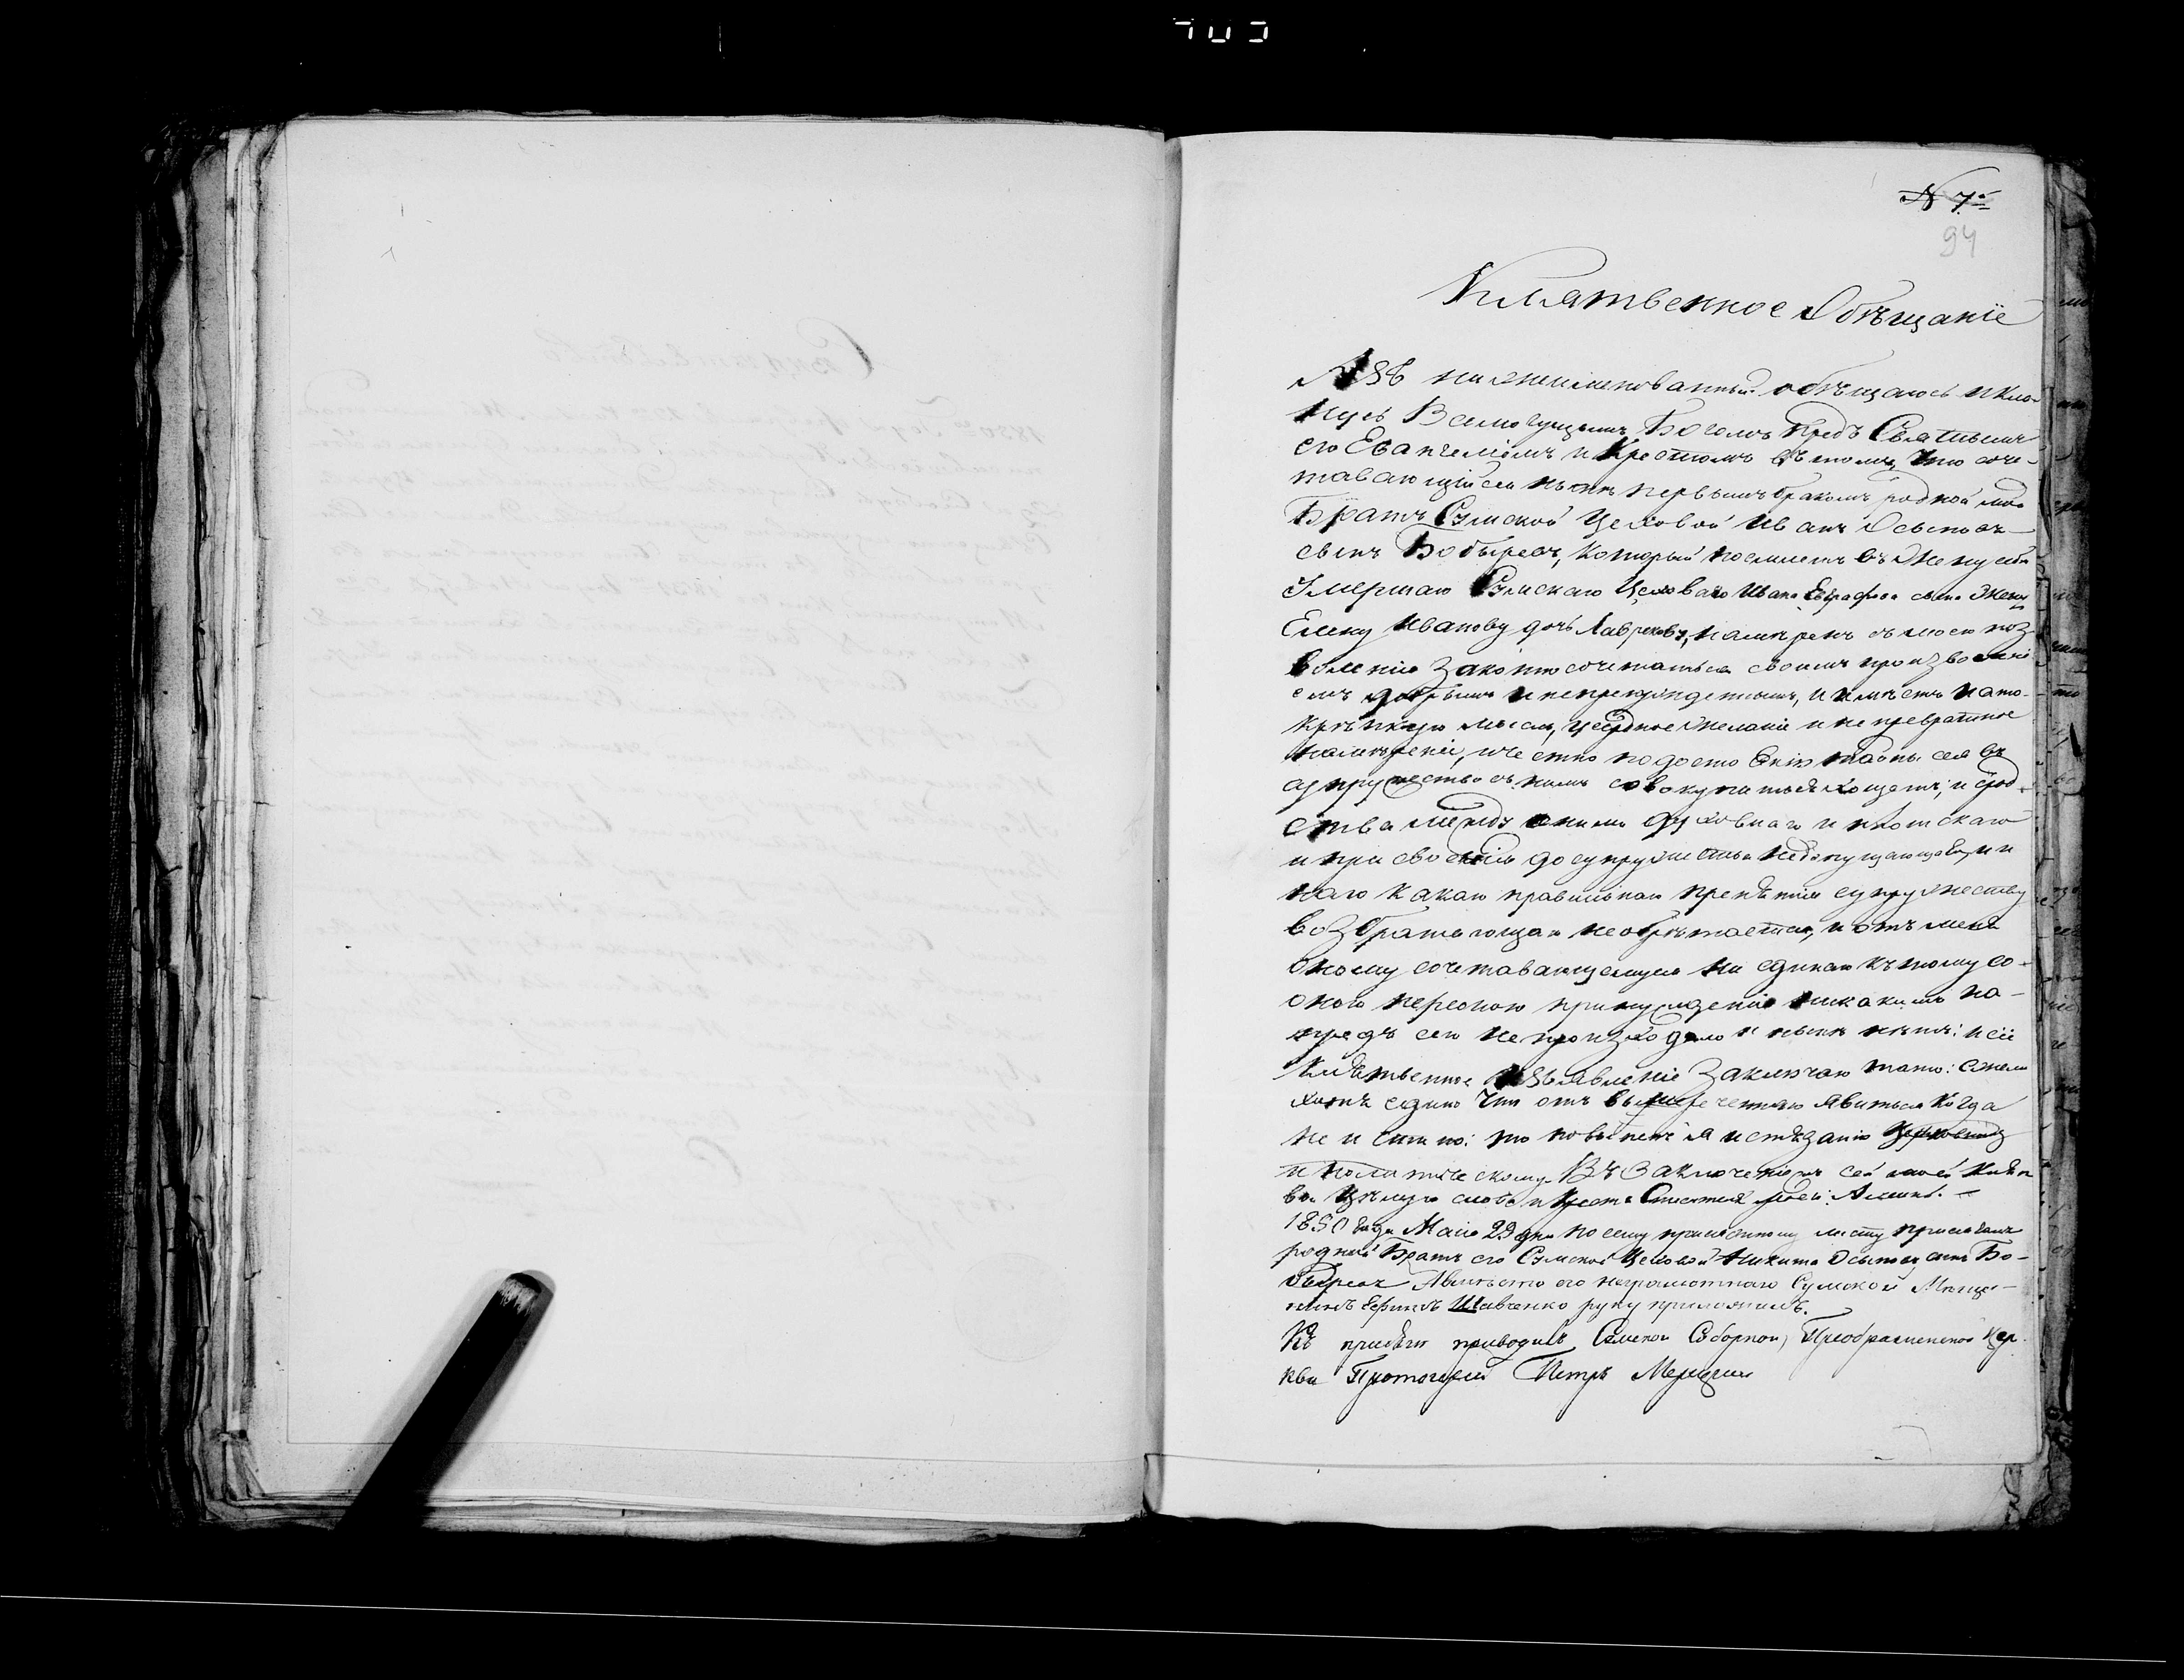 № 7й
94
Клятвенное Обѣщаніе
Азъ нижеименованный обѣщаюсь и кля-
нусь Всемогущимъ Богомъ предъ Святымъ
его Евангеліемъ и Крестомъ въ томъ, что соче-
тавающійся нынѣ первымъ бракомъ родной мой
Братъ Сумской Цеховой Иванъ Осиповъ
сынъ Бобыревъ, который поемлетъ въ жену себѣ
Умершаго Сумскаго Цеховаго Ивана Евграфова сына жену
Елену Иванову дочь Лавренову, намѣренъ съ моего поз-
воленія законно сочетаться своимъ произволені-
емъ добрымъ и непренужденнымъ, и имѣетъ на то
крѣпкую мысль, усердное желаніе и не превратное
намѣреніе, и честно по достоянію тайны сея въ
супружество съ нимъ совокупиться хощетъ; и срод-
ства между оными духовнаго и плотскаго
и присвоенія до супружества недопущающаго, и и
наго какаго правильнаго препятія супружеству
возбраняющаго необрѣтается, и отъ меня
оному сочетавающемуся ни единаго къ тому со
оною персоною принужденія никакимъ на-
предъ сего непроизходило и нынѣ нѣтъ: и сіе
Клятвенное изъявленіе заключаю тако: ежели
хотя едино что отъ вышереченнаго явиться когда
не истинно: то повиненъ я истязанію Церковному
и политическому. Въ заключеніи сей моей клят
вы цѣлую слова и Крестъ Спасителя моего: Аминь.
1850 года Маія 29 дня по сему присяжному листу присягалъ
родной Братъ его Сумской Цеховой Никита Осиповъ сынъ Бо-
быревъ А вмѣсто его неграмотнаго Сумской Мѣща-
нинъ Ефимъ Шевченко руку приложилъ.
Къ присягѣ приводилъ Сумской Соборной, Преображенской Цер-
кви Протоіерей Петръ